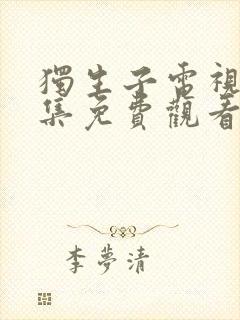 獨生子電視
集免費觀看
李夢清